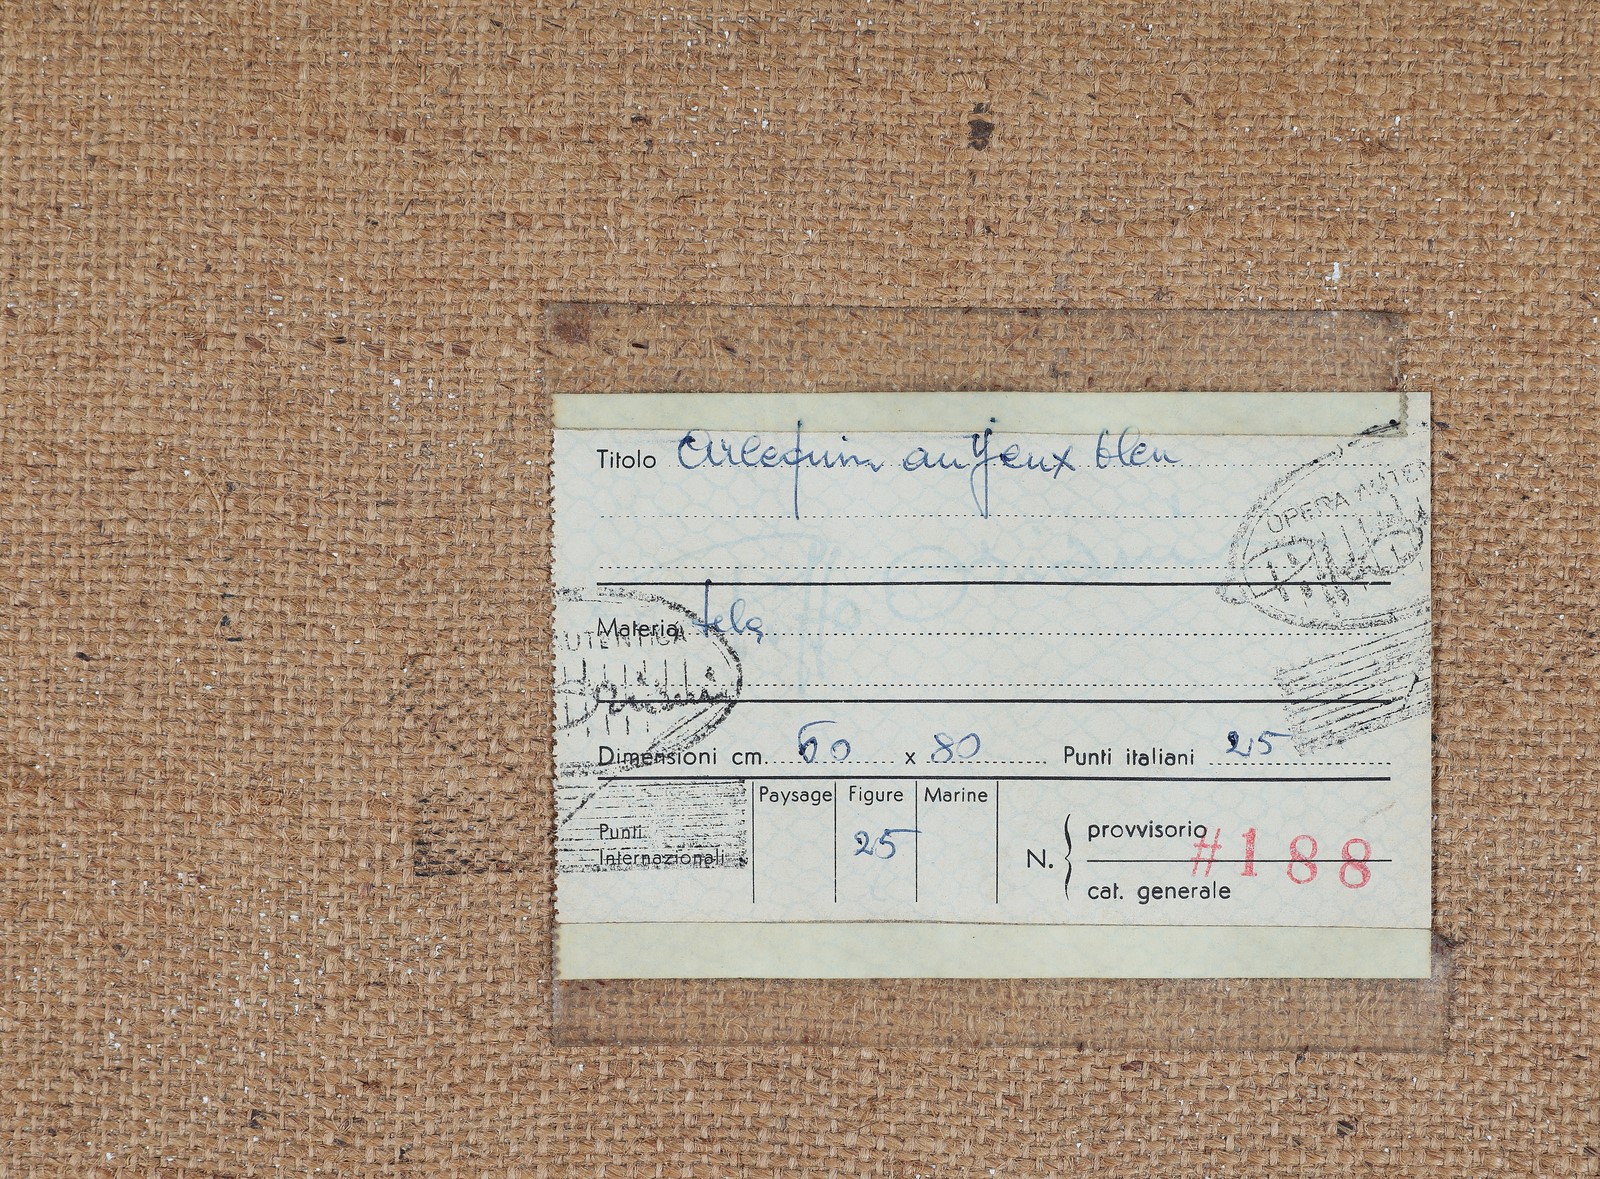 Titolo Arlequin au yeux bleu
OPERA AUTEN
Materia tela
UTENTICA
Dimensioni cm. 60 x 80 Punti italiani 25
Paysage Figure Marine
Punti
Internazionali
25
N. provvisorio #188
cat. generale